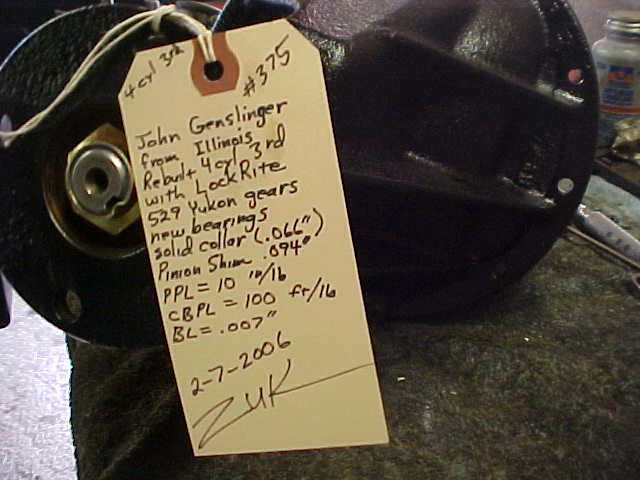 4 cyl 3rd
#375
John Genslinger
from Illinois
Rebuilt 4cyl 3rd
with LockRite
529 Yukon gears
new bearings
solid collar (.066")
Pinion Shim .094"
PPL = 10 in/lb
CBPL = 100 fr/lb
BL = .007"
2-7-2006
ZUK